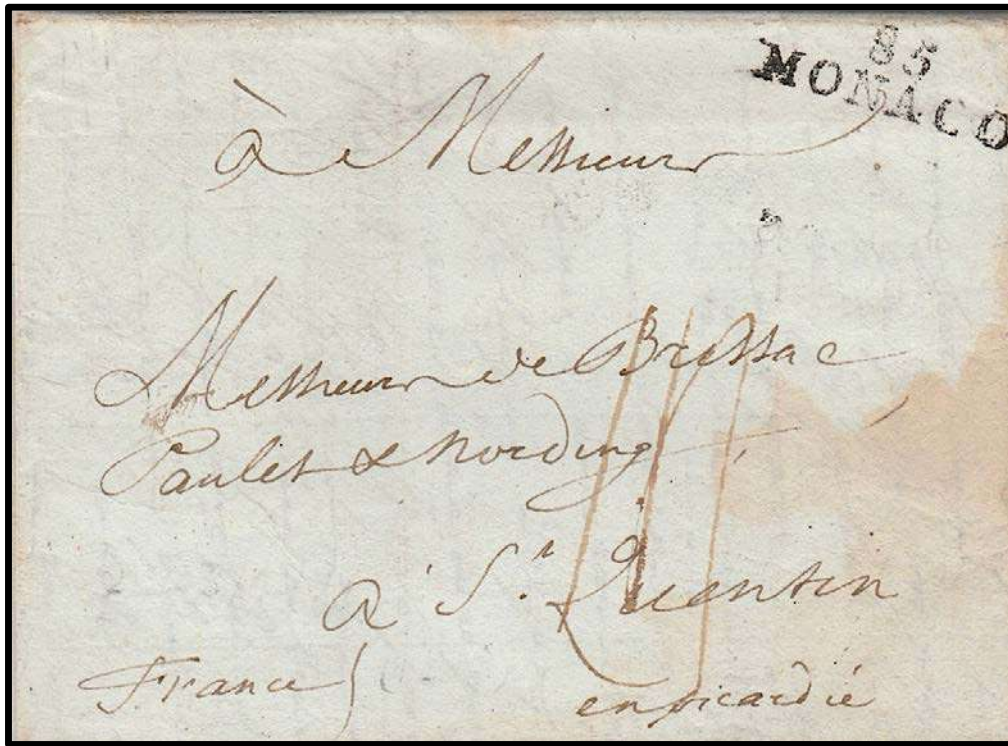 85
MONACO
à Messieurs
Messieurs de Brissac
Paulet & Nording
a St. Quentin
France
en picardie